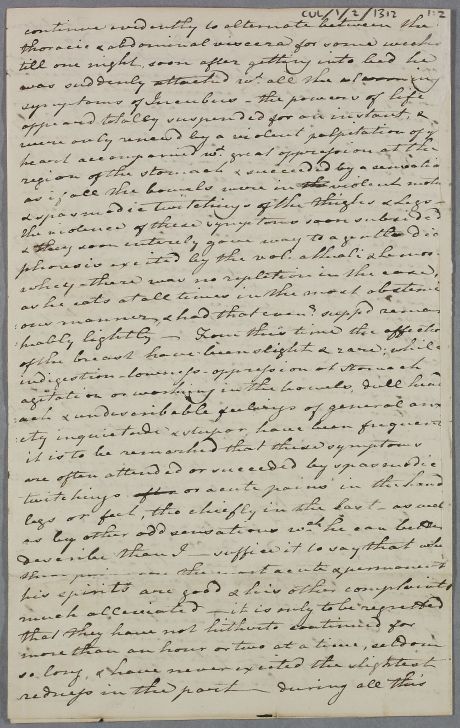 CUL/1/2/1312
1:2
continue evidently to alternate between the
thoracic & abdominal viscera for some weeks
till one night, soon after getting into bed he
was suddenly attacked wt. all the alarming
symptoms of Incubus – the powers of life
appeared totally suspended for an instant, &
were only renewed by a violent palpitation of ye
heart accompanied wt. great oppression at the
region of the stomach & succeeded by a sensatio
as if all the bowels were in violent moti
& spasmodic twitchings of the thighs & legs –
the violence of these symptoms soon subsided
& they soon entirely gave way to a gentle dia
phoresis excited by the vol: alkali &
whey – there was no repletion in the case,
as he eats at all times in the most abstemi
ous manner, & had that eveng. supp'd remar
kably lightly – From this time the affectio
of the breast have been slight & rare; while
indigestion – lowness – oppression at stomach
agitation or working in the bowels, dull head
ach & undescribable feelings of general anx
iety inquietude & stupor, have been frequent
it is to be remarked that these symptoms
are often attended or succeeded by spasmodic
twitchings or acute pains in the hand
legs or feet, tho chiefly in the last – as well
as by other odd sensations wch. he can better
describe than I – suffice it to say that when
these are the most acute & permanent
his spirits are good & his other complaints
much alleviated – it is only to be regretted
that they have not hitherto continued for
more than an hour or two at a time, seldom
so long, & have never excited the slightest
redness in the part – during all this